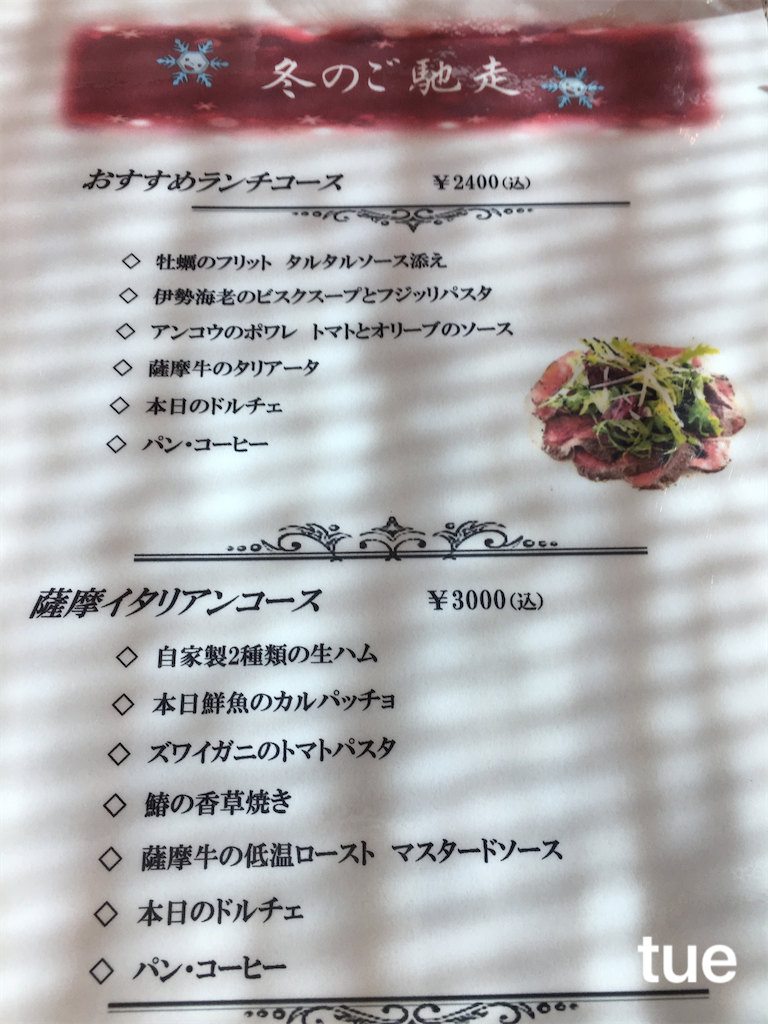 冬のご馳走
おすすめランチコース ￥2400(込)
◇ 牡蠣のフリット タルタルソース添え
◇ 伊勢海老のビスクスープとフジッリパスタ
◇ アンコウのポワレ トマトとオリーブのソース
◇ 薩摩牛のタリアータ
◇ 本日のドルチェ
◇ パン・コーヒー
薩摩イタリアンコース ￥3000(込)
◇ 自家製2種類の生ハム
◇ 本日鮮魚のカルパッチョ
◇ ズワイガニのトマトパスタ
◇ 鰆の香草焼き
◇ 薩摩牛の低温ロースト マスタードソース
◇ 本日のドルチェ
◇ パン・コーヒー
tue